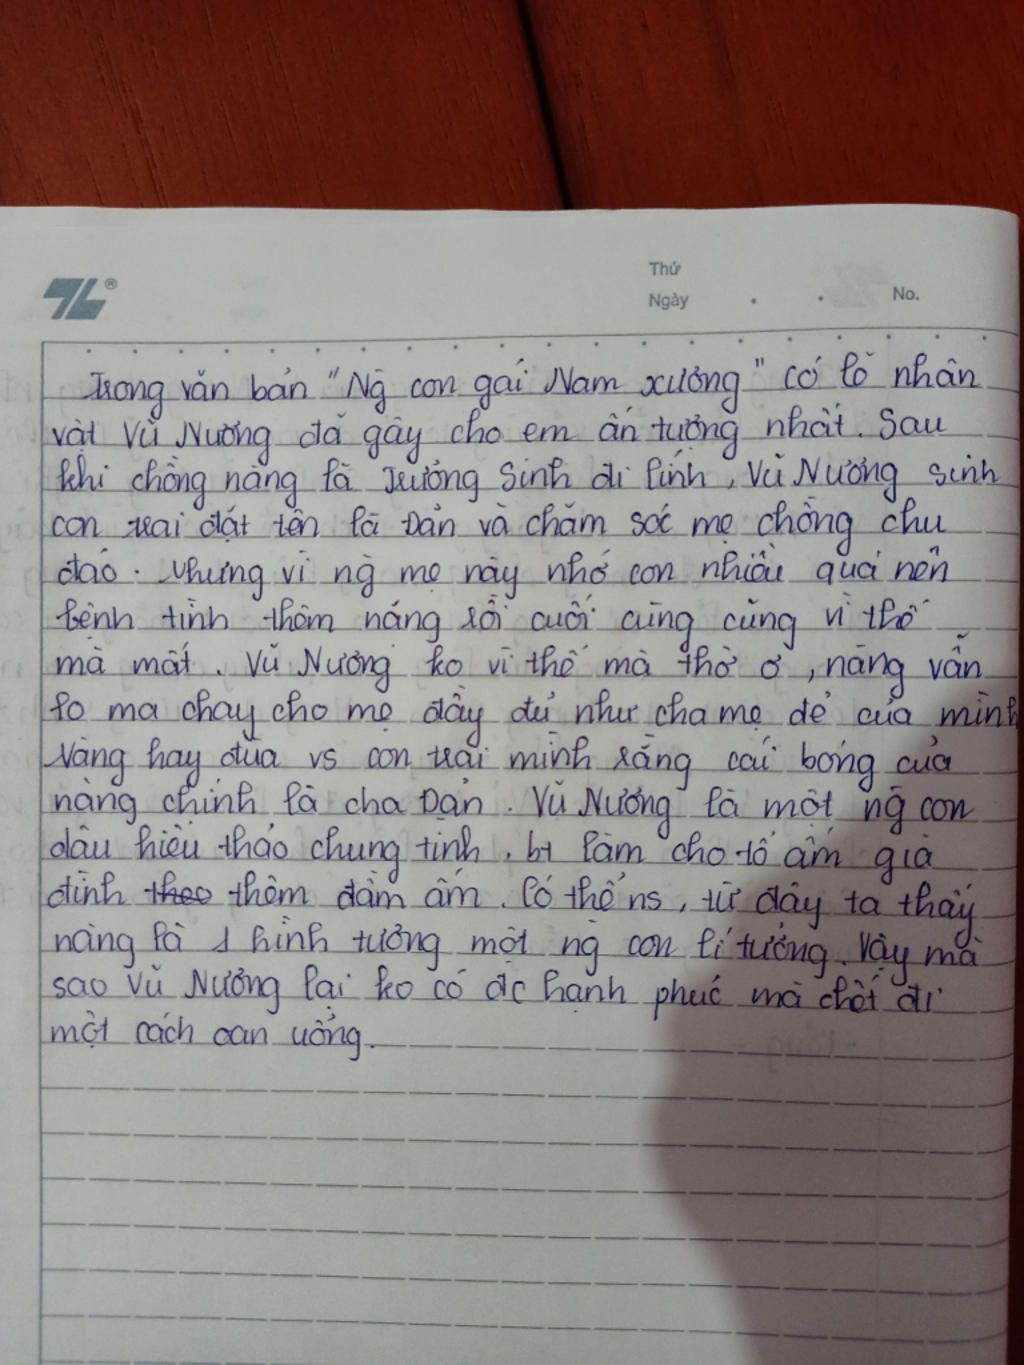 Thứ
Ngày . . No.
Trong văn bản "Ng̃ con gái Nam xương" có lẽ nhân
vật Vũ Nương đã gây cho em ấn tượng nhất. Sau
khi chồng nàng là Trương Sinh đi lính, Vũ Nương sinh
con trai đặt tên là Đản và chăm sóc mẹ chồng chu
đáo. Nhưng vì ng̃ mẹ này nhớ con nhiều quá nên
bệnh tình thêm nặng rồi cuối cùng cũng vì thế
mà mất. Vũ Nương ko vì thế mà thờ ơ, nàng vẫn
lo ma chay cho mẹ đầy đủ như cha mẹ đẻ của mình
Nàng hay đùa vs con trai mình rằng cái bóng của
nàng chính là cha Đản. Vũ Nương là một ng̃ con
dâu hiếu thảo chung tình, bt làm cho tổ ấm gia
đình theo thêm đầm ấm. Có thể ns, từ đây ta thấy
nàng là 1 hình tượng một ng̃ con lí tưởng. Vậy mà
sao Vũ Nương lại ko có đc hạnh phúc mà chết đi
một cách oan uổng.